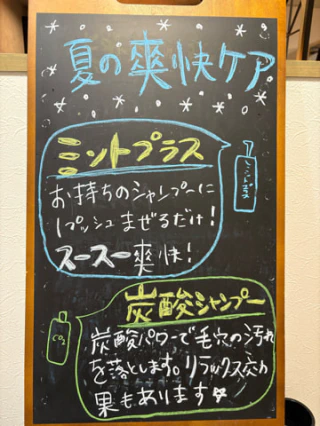 夏の爽快ケア
ミントプラス
お持ちのシャンプーに
1プッシュまぜるだけ!
スースー爽快!
炭酸シャンプー
CO2
炭酸パワーで毛穴の汚れ
を落とします。リラックス効
果もあります